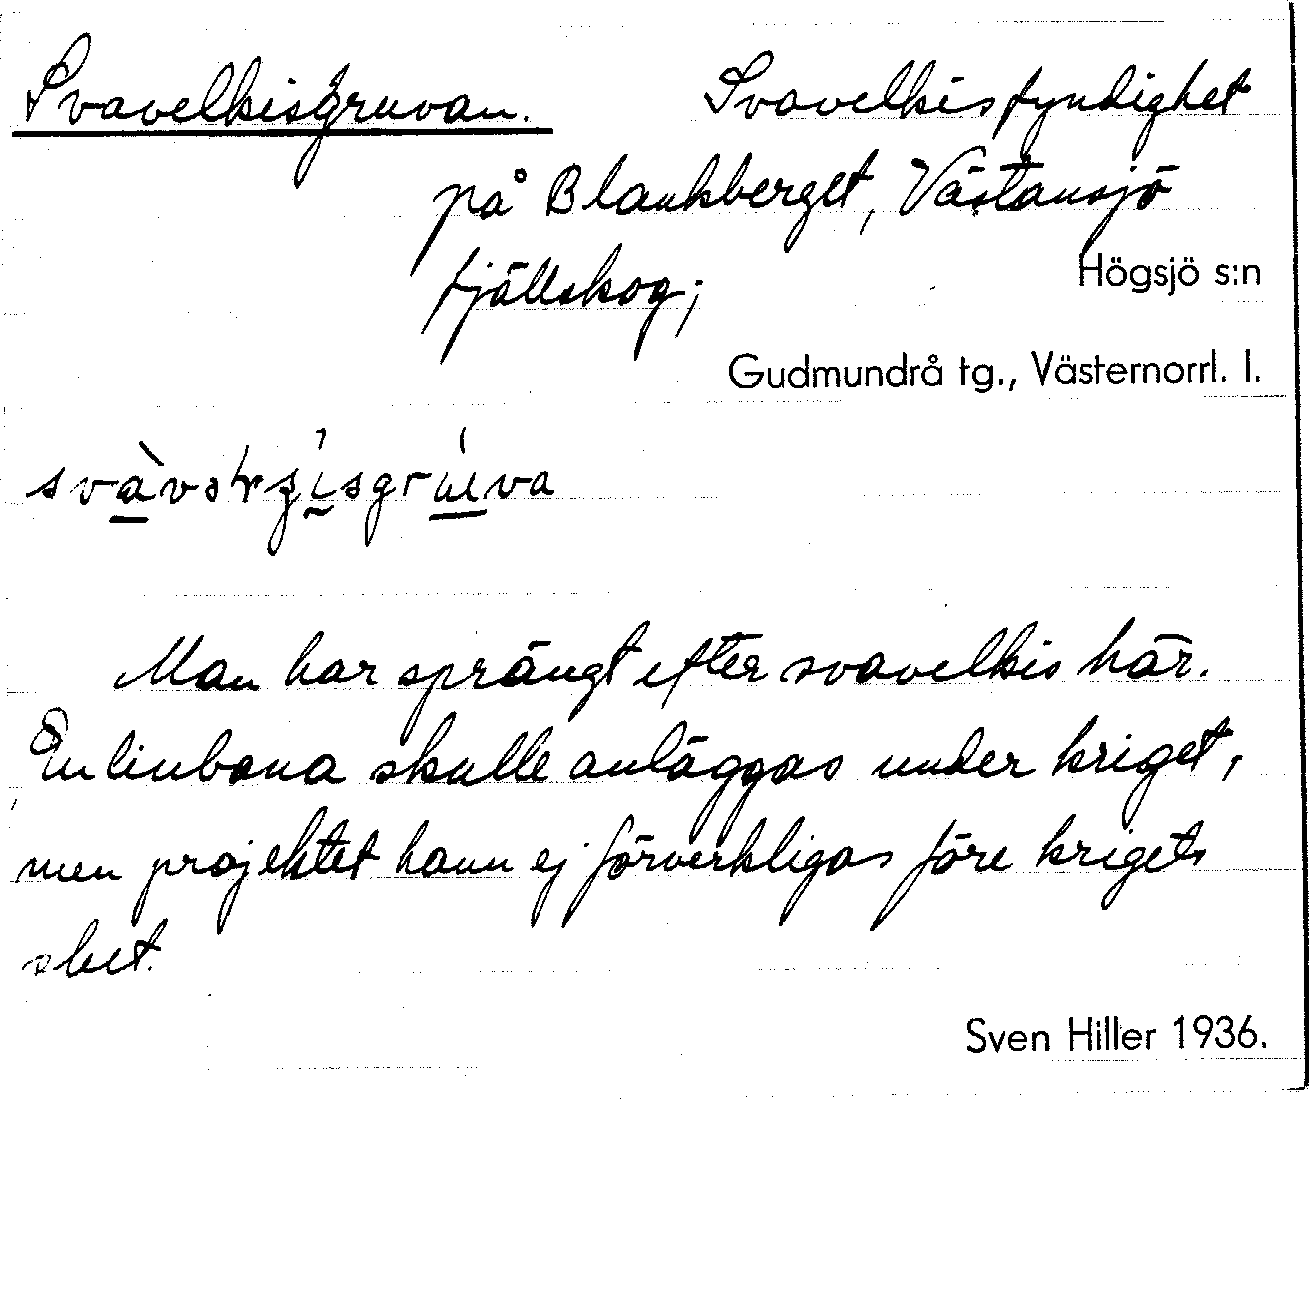 Svavelkisgruvan. Svavelkisfyndighet
på Blankberget, Västansjö
fjällskog; Högsjö s:n
Gudmundrå tg., Västernorrl. l.
Man har sprängt efter svavelkis här.
En linbana skulle anläggas under kriget,
men projektet hann ej förverkligas före krigets
slut.
Sven Hiller 1936.